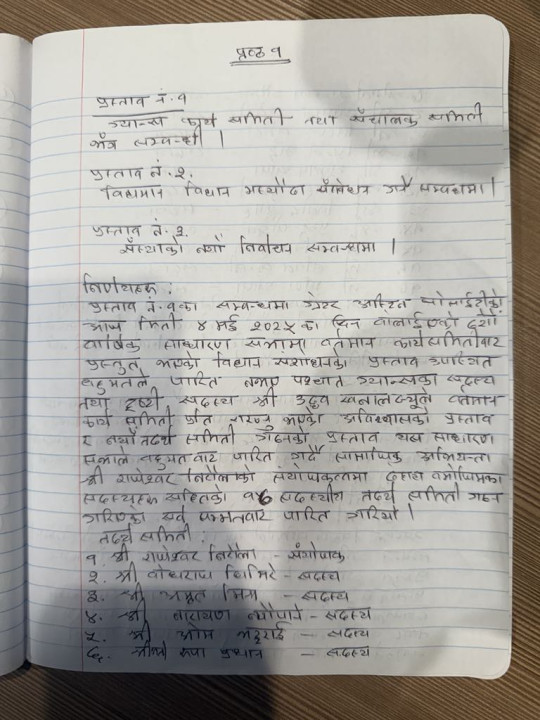 प्रष्ठ १
प्रस्ताव नं. १
ग्यान्स कार्य समिती तथा सँचालक समिती
बीच सम्बन्धी ।
प्रस्ताव नं. २.
विद्यमान विधान मस्यौदा सँसोधन गर्ने सम्बन्धमा ।
प्रस्ताव नं. ३.
सँस्थाको नयाँ निर्वाचन सम्बन्धमा ।
निर्णयहरू :
प्रस्ताव नं. १का सम्बन्धमा ग्रेटर अस्टिन सोसाईटीको
आज मिती ४ मई २०२५ का दिन बोलाईएको दशौं
वार्षिक साधारण सभामा वर्तमान कार्य समितीबाट
प्रस्तुत भएको विधान संशोधनको प्रस्ताव उपस्थित
बहुमतले पारित नभए पश्चात ग्यान्सका सदस्य
तथा ट्रष्टी सदस्य श्री उद्धव खनालज्यूले वर्तमान
कार्य समिती प्रति राख्नु भएको अविश्वासको प्रस्ताव
र नयाँ तदर्थ समिती गठनको प्रस्ताव यस साधारण
सभाले बहुमतबाट पारित गर्दै सामाजिक अभियन्ता
श्री राजेश्वर निरौलाको संयोजकत्वमा देहाय बमोजिमका
सदस्यहरू सहितको १५ सदस्यीय तदर्थ समिती गठन
गरिएको सर्व सम्मतबाट पारित गरियो ।
तदर्थ समिती :
१. श्री राजेश्वर निरौला - संयोजक
२. श्री बोधराज घिमिरे - सदस्य
३. श्री अमृत मिश्र - सदस्य
४. श्री नारायण न्यौपाने - सदस्य
५. श्री ओम भट्टराई - सदस्य
६. श्रीमती रूपा प्रधान - सदस्य